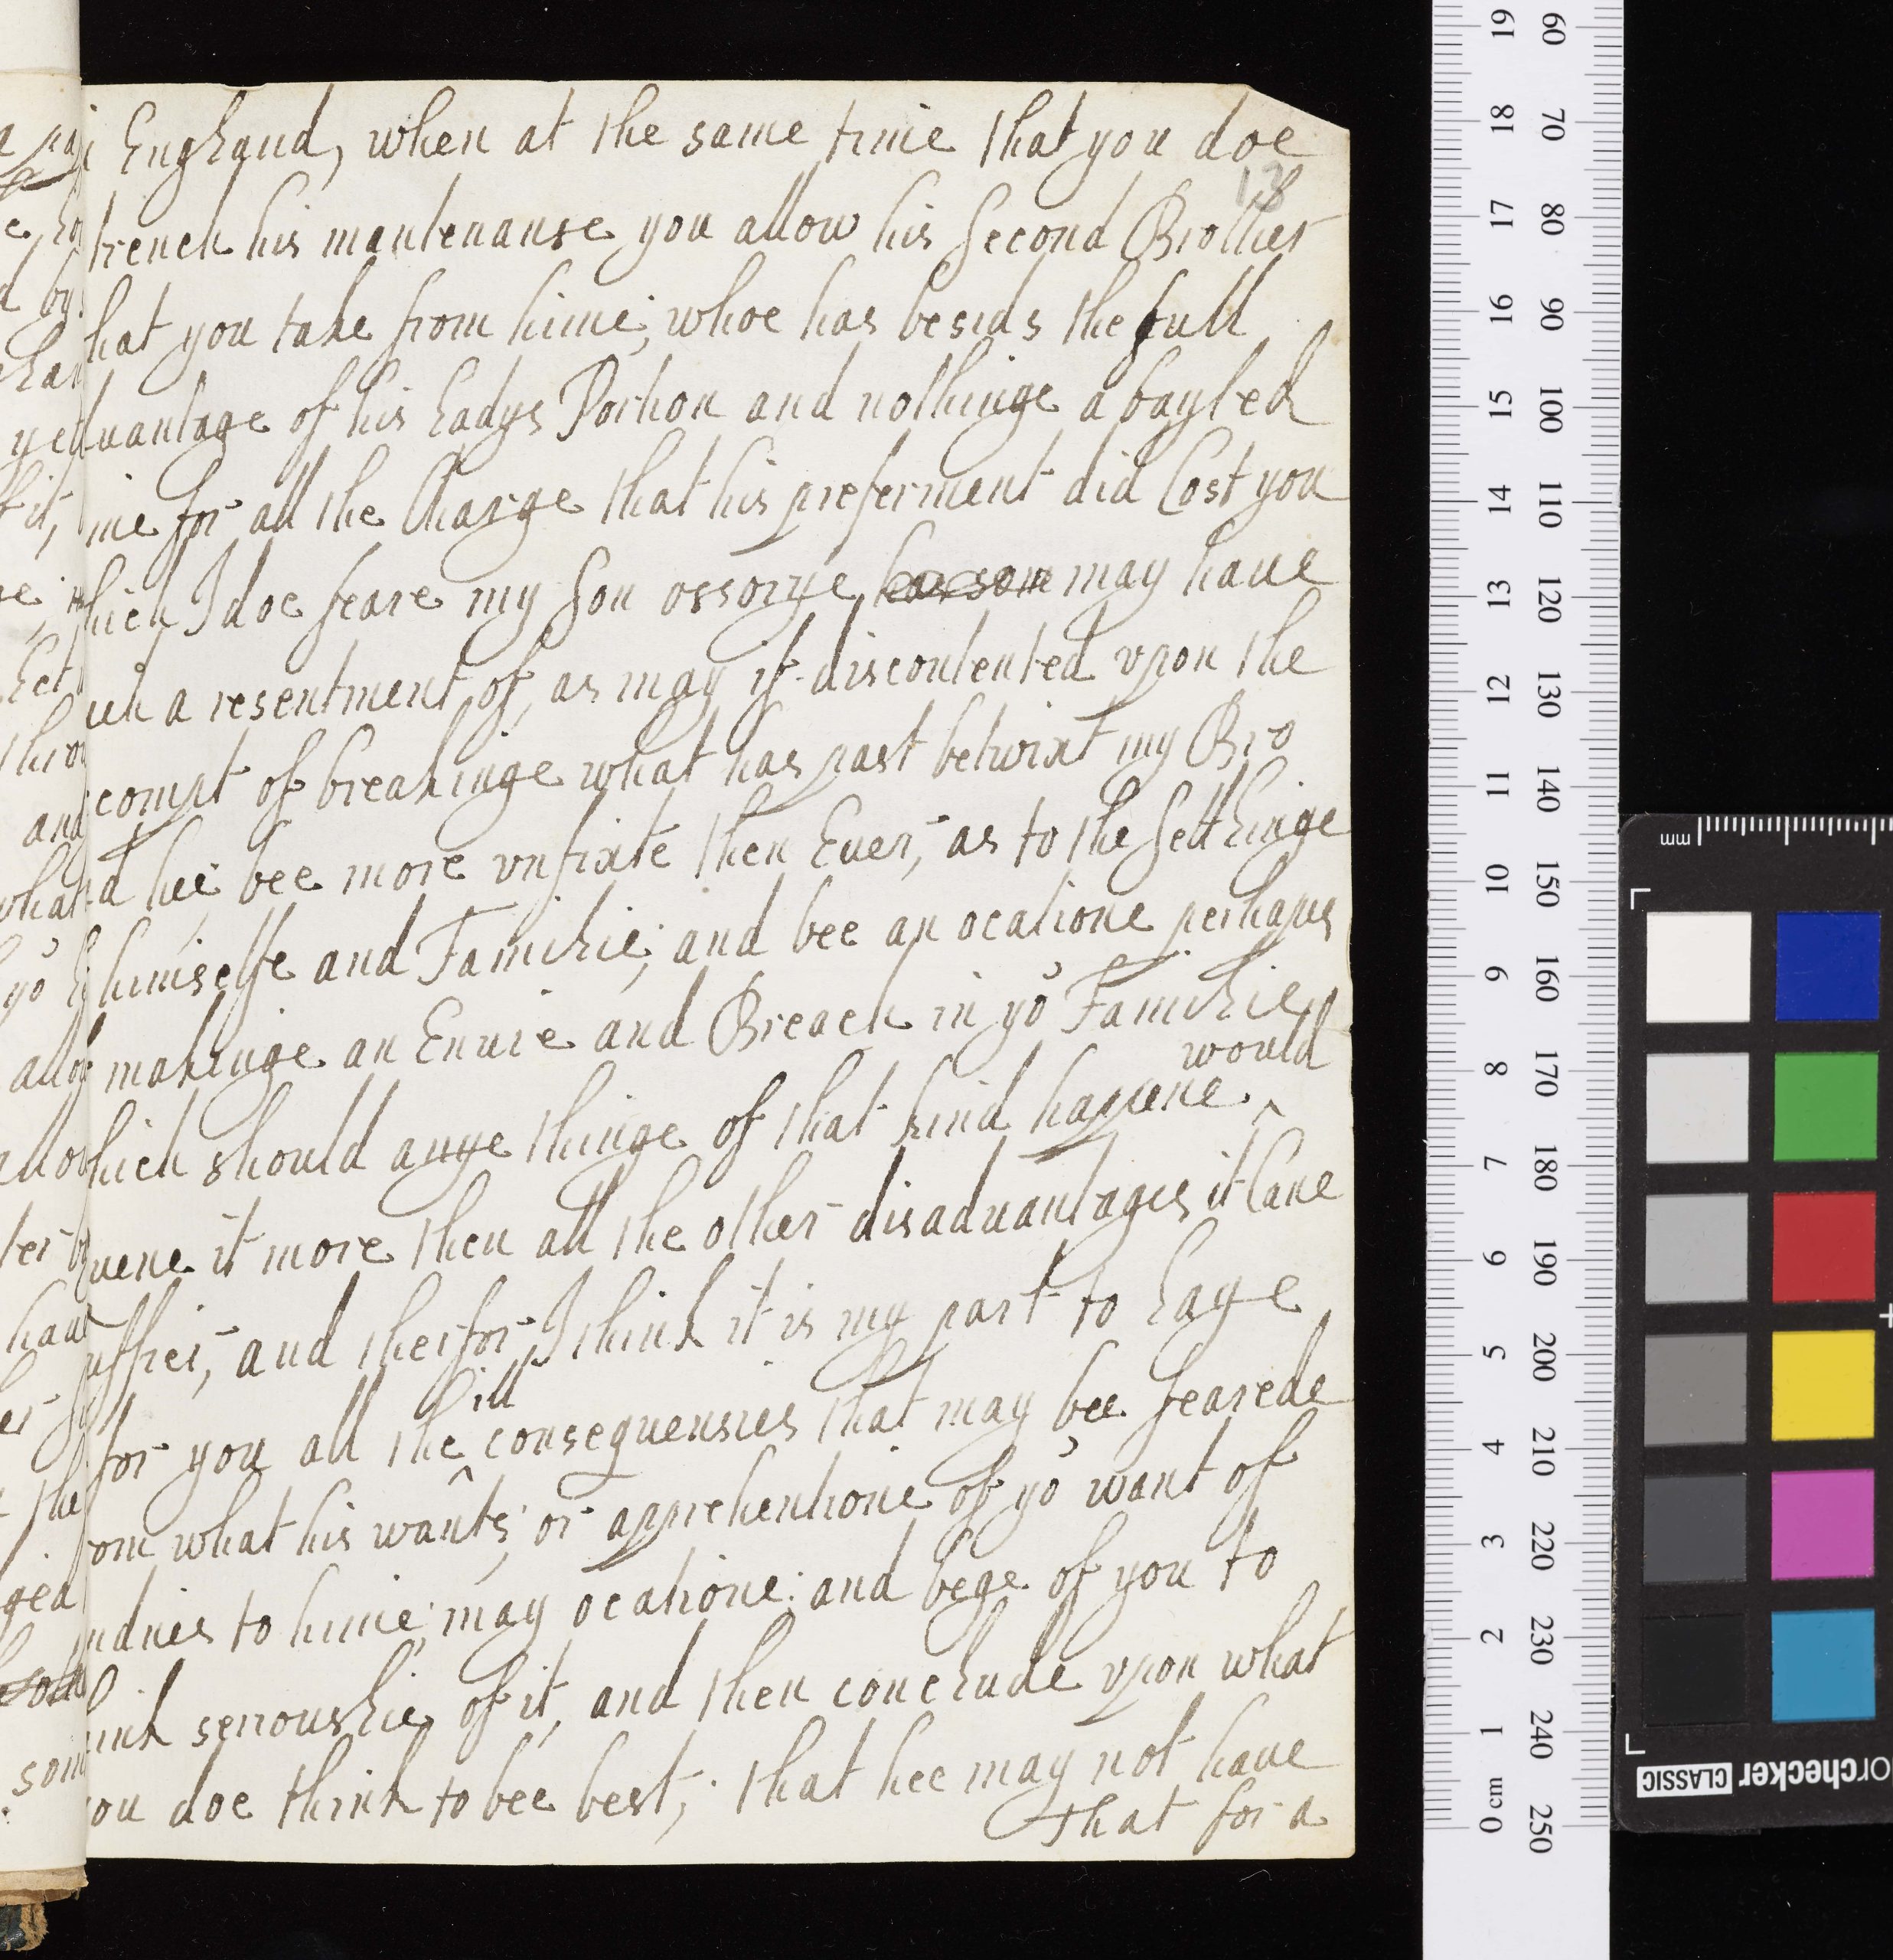 England, when at the same time that you doe
13
trench his mantenanse you allow his Second Brother
hat you take from hime; whoe has besids the full
duantage of his Ladys Portion and nothinge abayted
ime for all the Charge that his preferment did Cost you
hich I doe feare my Son ossorye may haue
uch a resentment of, as may if discontented vpon the
compt of breakinge what has past betwixt my Bro
d hee bee more vnfixte then Euer, as to the Setlinge
himselfe and Familie; and bee an ocatione perhaps
makinge an Enuie and Breach in yor Familie
would
hich should anye thinge of that kind hapene ^
uene it more then all the other disaduantages it Cane
uffrer, and therfor I think it is my part to laye
ill
for you all the ^ consequensies that may bee fearede
om what his wants, or apprehentione of yor want of
ndnes to hime; may ocatione: and bege of you to
ink seriouslie of it, and then conclude vpon what
ou doe think to bee best; that hee may not haue
that for a
19 18 17 16 15 14 13 12 11 10 9 8 7 6 5 4 3 2 1 0 cm
60 70 80 90 100 110 120 130 140 150 160 170 180 190 200 210 220 230 240 250
mm
orchecker CLASSIC